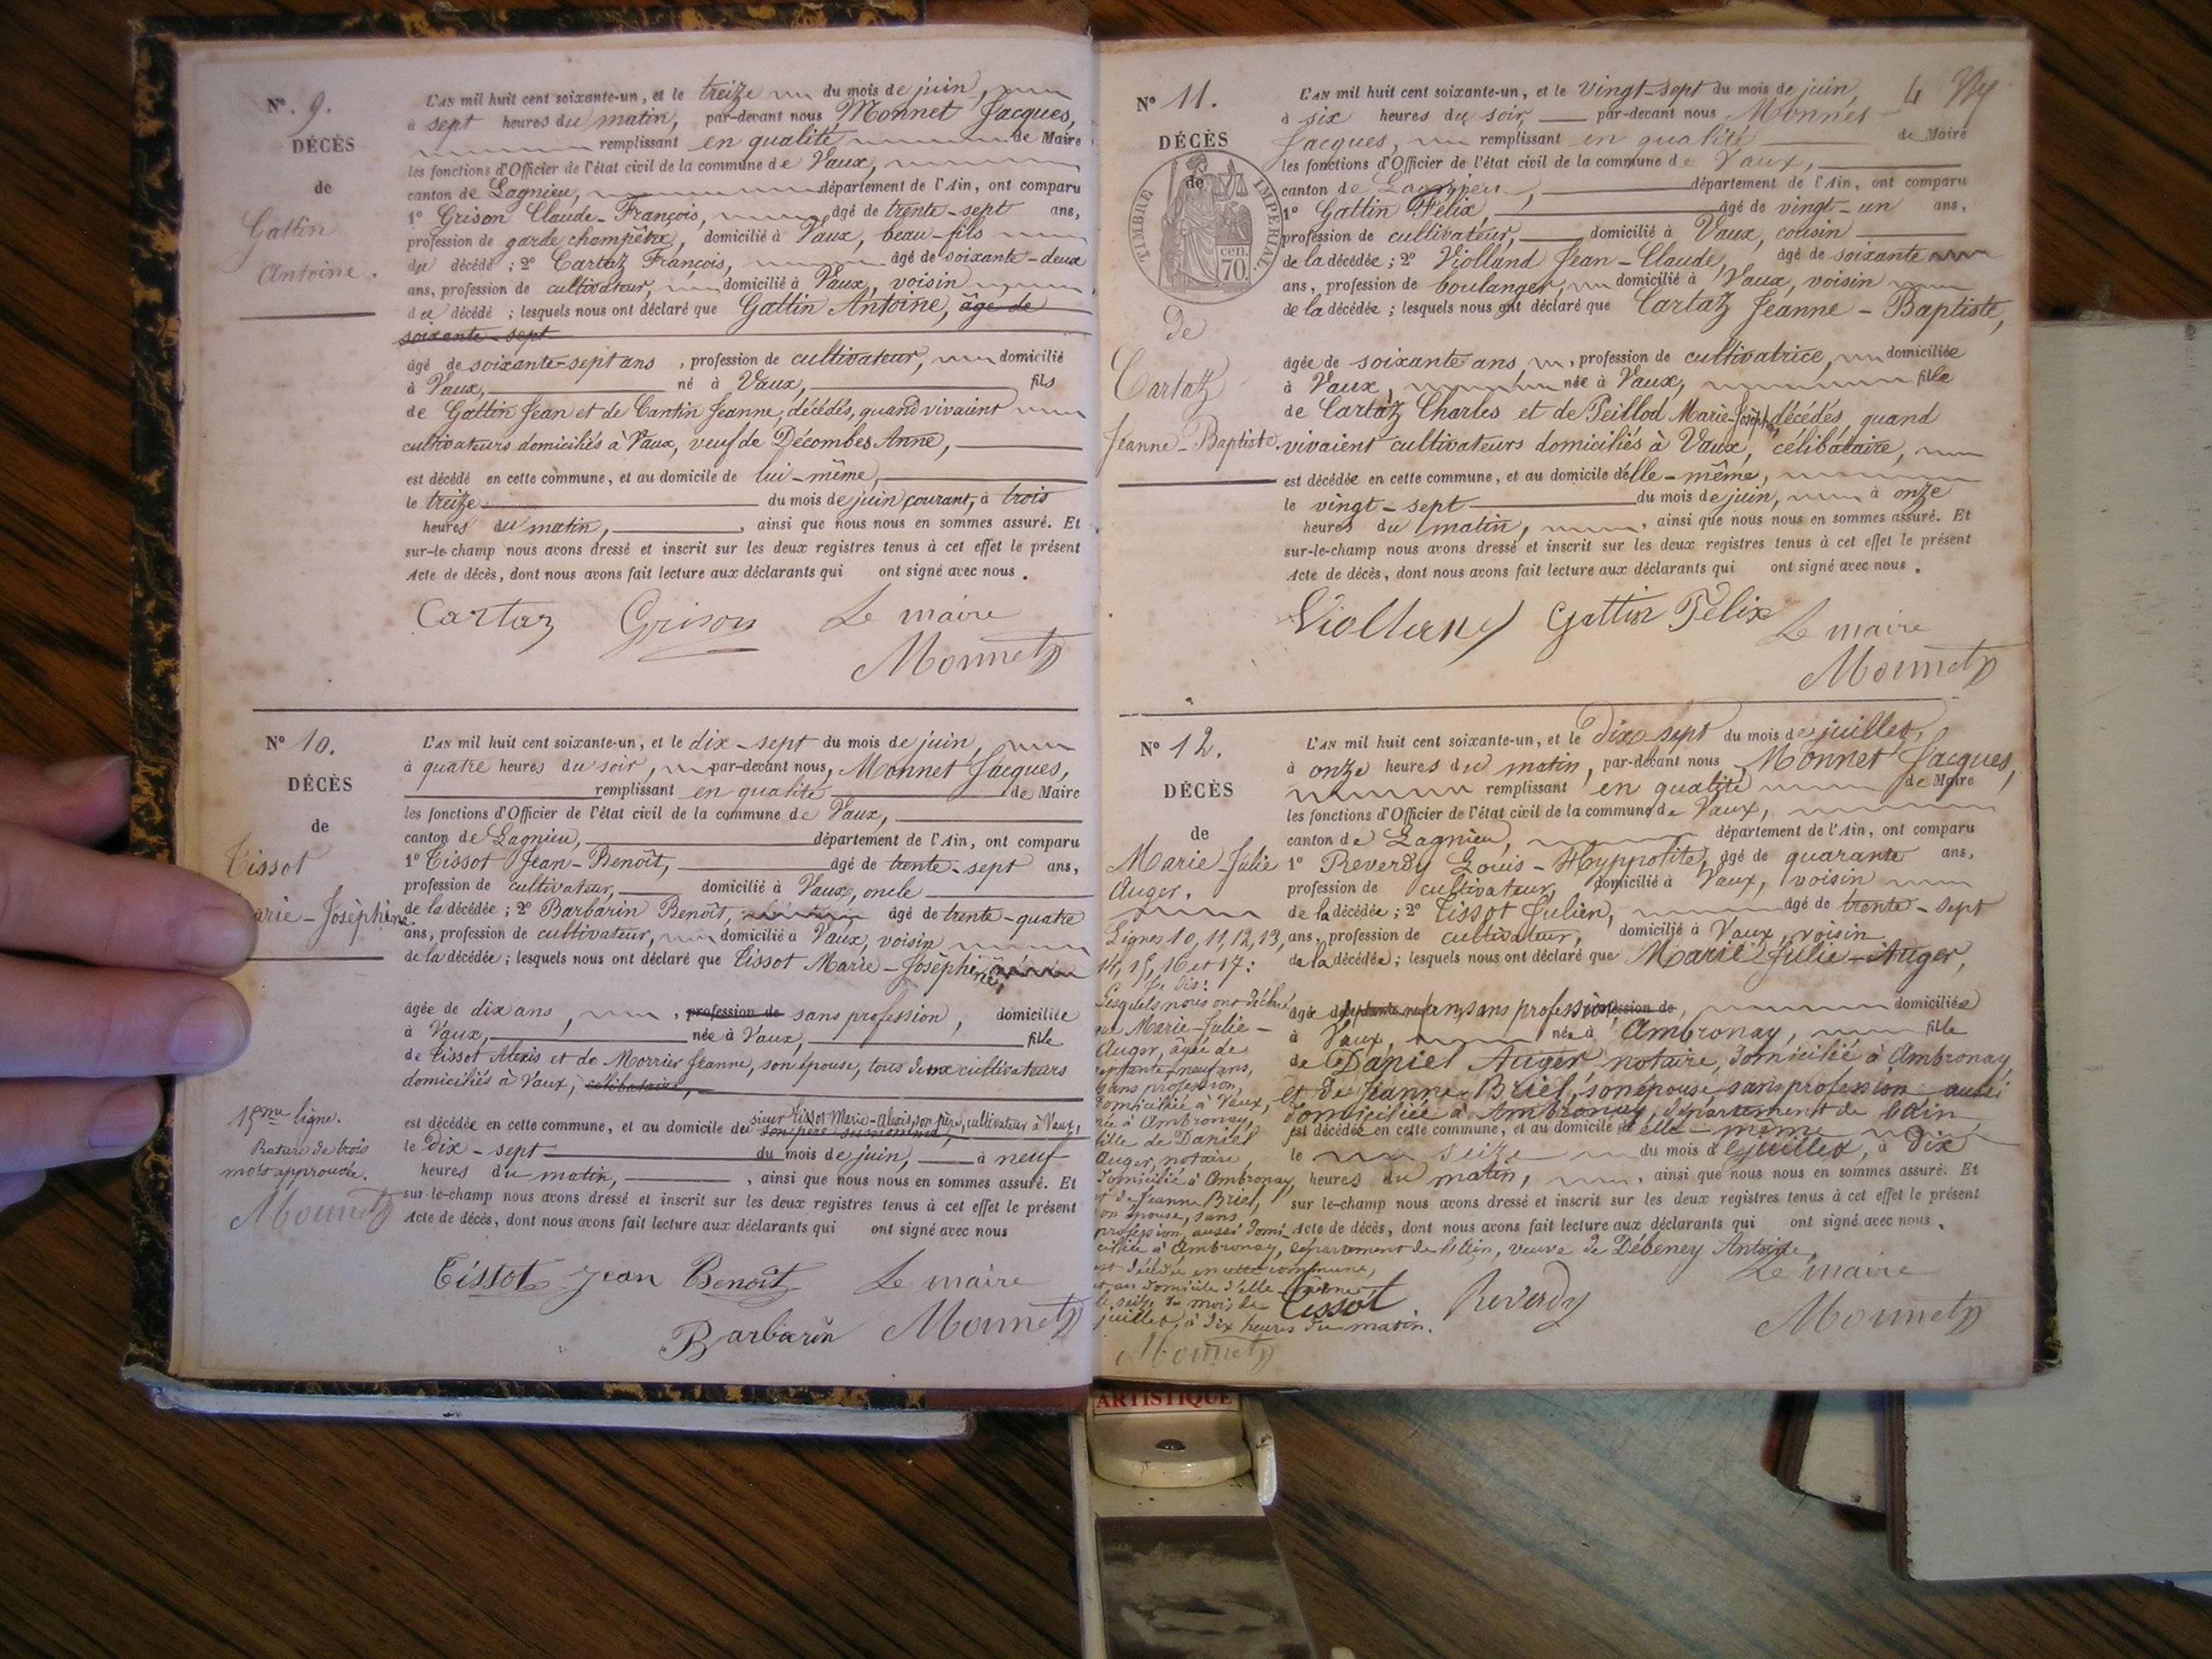 N° 9.
DÉCÈS
de
Gattin
Antoine.
L'AN mil huit cent soixante-un, et le treize du mois de juin,
à sept heures du matin, par-devant nous Monnet Jacques,
remplissant en qualité de Maire
les fonctions d'Officier de l'état civil de la commune de Vaux,
canton de Lagnieu, département de l'Ain, ont comparu
1° Grison Claude-François, âgé de trente-sept ans,
profession de garde champêtre, domicilié à Vaux, beau-fils
du décédé ; 2° Cartaz François, âgé de soixante-deux
ans, profession de cultivateur, domicilié à Vaux, voisin
du décédé ; lesquels nous ont déclaré que Gattin Antoine, âgé de
soixante-sept
âgé de soixante-sept ans, profession de cultivateur, domicilié
à Vaux, né à Vaux, fils
de Gattin Jean et de Cantin Jeanne, décédés, quand vivaient
cultivateurs domiciliés à Vaux, veuf de Décombes Anne,
est décédé en cette commune, et au domicile de lui-même,
le treize du mois de juin courant, à trois
heures du matin, ainsi que nous nous en sommes assuré. Et
sur-le-champ nous avons dressé et inscrit sur les deux registres tenus à cet effet le présent
Acte de décès, dont nous avons fait lecture aux déclarants qui ont signé avec nous.
Cartaz Grison Le maire
Monnet
N° 10.
DÉCÈS
de
Tissot
arie-Josèphine
15me ligne.
Rature de trois
mots approuvée.
Monnet
L'AN mil huit cent soixante-un, et le dix-sept du mois de juin,
à quatre heures du soir, par-devant nous, Monnet Jacques,
remplissant en qualité de Maire
les fonctions d'Officier de l'état civil de la commune de Vaux,
canton de Lagnieu, département de l'Ain, ont comparu
1° Tissot Jean-Benoît, âgé de trente-sept ans,
profession de cultivateur, domicilié à Vaux, oncle
de la décédée ; 2° Barbarin Benoît, âgé de trente-quatre
ans, profession de cultivateur, domicilié à Vaux, voisin
de la décédée ; lesquels nous ont déclaré que Tissot Marie-Josèphine,
âgée de dix ans, profession de sans profession, domiciliée
à Vaux, née à Vaux, fille
de Tissot Alexis et de Morrier Jeanne, son épouse, tous deux cultivateurs
domiciliés à Vaux, célibataire,
sieur Tissot Marie-Alexis, son père, cultivateur à Vaux,
est décédée en cette commune, et au domicile du son père susnommé,
le dix-sept du mois de juin, à neuf
heures du matin, ainsi que nous nous en sommes assuré. Et
sur-le-champ nous avons dressé et inscrit sur les deux registres tenus à cet effet le présent
Acte de décès, dont nous avons fait lecture aux déclarants qui ont signé avec nous
Tissot Jean Benoît Le maire
Barbarin Monnet
4
N° 11.
DÉCÈS
de
TIMBRE IMPÉRIAL
70 cen.
De
Cartaz
Jeanne-Baptiste.
L'AN mil huit cent soixante-un, et le vingt-sept du mois de juin,
à six heures du soir par-devant nous Monnet
Jacques, remplissant en qualité de Maire
les fonctions d'Officier de l'état civil de la commune de Vaux,
canton de Lagnieu, département de l'Ain, ont comparu
1° Gattin Félix, âgé de vingt-un ans,
profession de cultivateur, domicilié à Vaux, cousin
de la décédée ; 2° Violland Jean-Claude, âgé de soixante
ans, profession de boulanger, domicilié à Vaux, voisin
de la décédée ; lesquels nous ont déclaré que Cartaz Jeanne-Baptiste,
âgée de soixante ans, profession de cultivatrice, domiciliée
à Vaux, née à Vaux, fille
de Cartaz Charles et de Peillod Marie-Josèphe, décédés, quand
vivaient cultivateurs domiciliés à Vaux, célibataire,
est décédée en cette commune, et au domicile d'elle-même,
le vingt-sept du mois de juin, à onze
heures du matin, ainsi que nous nous en sommes assuré. Et
sur-le-champ nous avons dressé et inscrit sur les deux registres tenus à cet effet le présent
Acte de décès, dont nous avons fait lecture aux déclarants qui ont signé avec nous.
Violland Gattin Félix Le maire
Monnet
N° 12.
DÉCÈS
de
Marie-Julie
Auger.
Lignes 10, 11, 12, 13,
14, 15, 16 et 17:
Je dis:
Lesquels nous ont déclaré
que Marie-Julie-
Auger, âgée de
septante-neuf ans,
sans profession,
domiciliée à Vaux,
née à Ambronay,
fille de Daniel
Auger, notaire,
domicilié à Ambronay,
et de Jeanne Briel,
son épouse, sans
profession, aussi domi-
ciliée à Ambronay, département de l'Ain, veuve de Débeney Antoine,
est décédée en cette commune,
et au domicile d'elle-même
le seize du mois de
juillet, à dix heures du matin.
Monnet
L'AN mil huit cent soixante-un, et le dix-sept du mois de juillet,
à onze heures du matin, par-devant nous, Monnet Jacques,
remplissant en qualité de Maire
les fonctions d'Officier de l'état civil de la commune de Vaux,
canton de Lagnieu, département de l'Ain, ont comparu
1° Reverdy Louis-Hyppolite, âgé de quarante ans,
profession de cultivateur, domicilié à Vaux, voisin
de la décédée ; 2° Tissot Julien, âgé de trente-sept
ans, profession de cultivateur, domicilié à Vaux, voisin
de la décédée ; lesquels nous ont déclaré que Marie Julie-Auger,
âgée de septante neuf ans, sans profession, profession de, domiciliée
à Vaux, née à Ambronay, fille
de Daniel Auger, notaire, domicilié à Ambronay,
et de Jeanne Briel, son épouse, sans profession aussi
domiciliée à Ambronay, département de l'ain,
est décédée en cette commune, et au domicile d'elle-même
le seize du mois de juillet, à dix
heures du matin, ainsi que nous nous en sommes assuré. Et
sur-le-champ nous avons dressé et inscrit sur les deux registres tenus à cet effet le présent
Acte de décès, dont nous avons fait lecture aux déclarants qui ont signé avec nous.
Le maire
Tissot. Reverdy Monnet
ARTISTIQUE